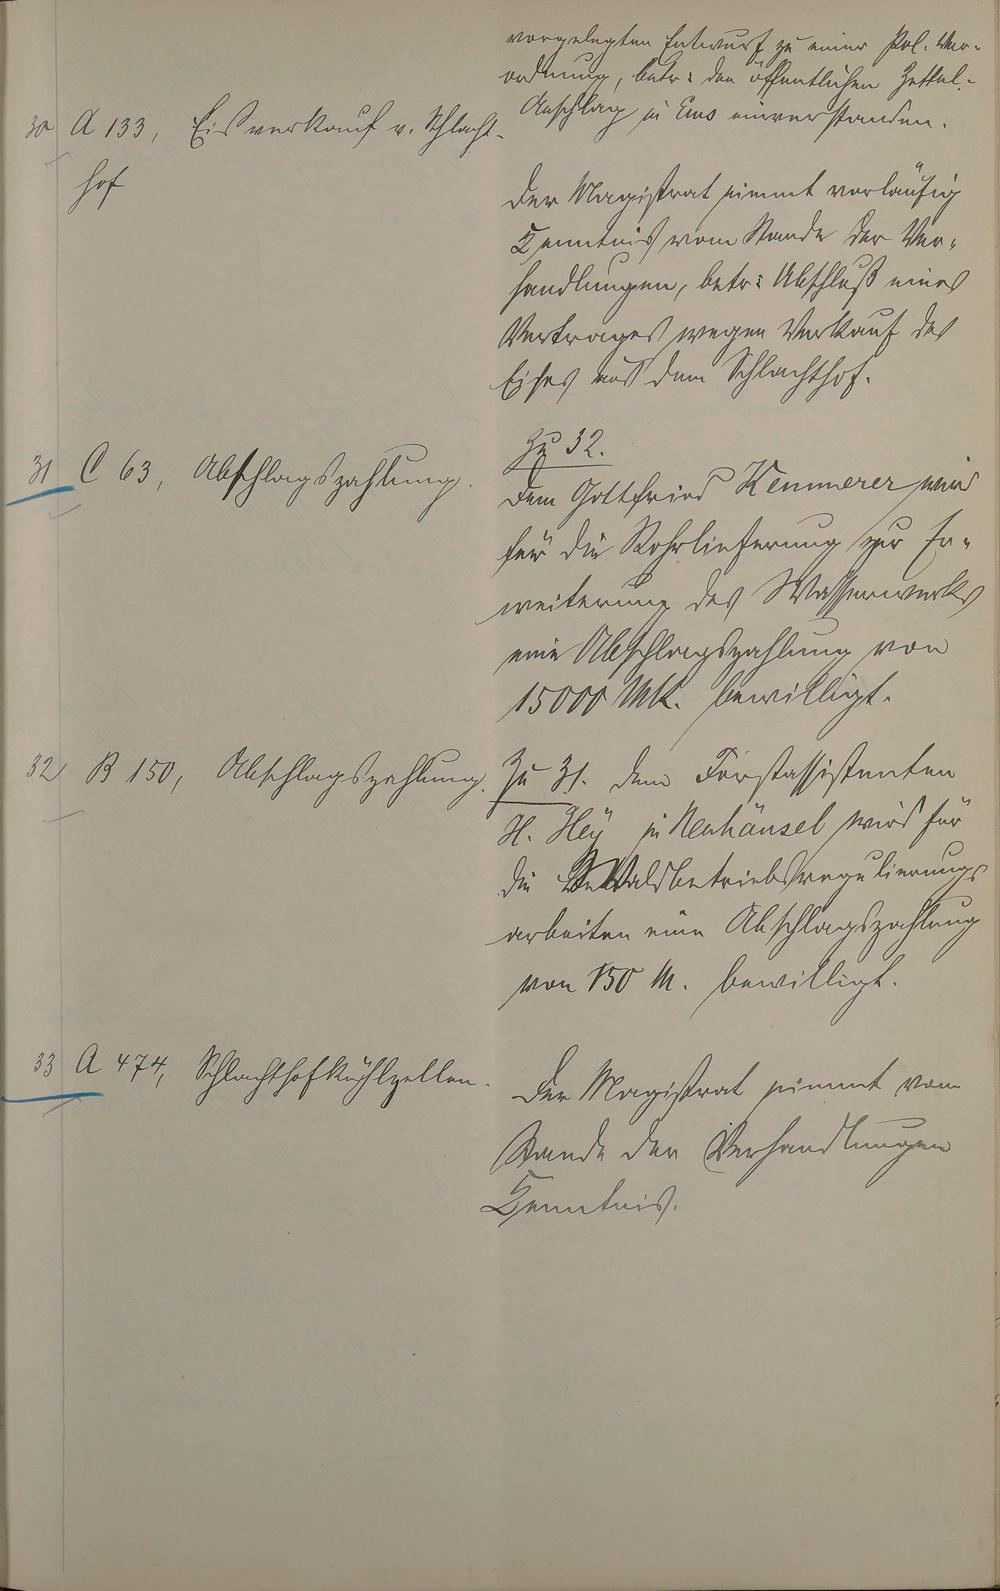 vorgelegten Entwurf zu einer Pol. Ver-
ordnung, betr: den öffentlichen Zettel-
Anschlag in Ems einverstanden.
30 A 133, Eisverkauf v. Schlacht-
hof
Der Magistrat nimmt vorläufig
Kenntnis vom Stande der Ver-
handlungen, betr: Abschluß eines
Vertrages wegen Verkauf des
Eises aus dem Schlachthof.
31 C 63, Abschlagszahlung.
Zu 32.
Dem Gottfried Kemmerer wird
für die Rohrlieferung zur Er-
weiterung des Wasserwerks
eine Abschlagszahlung von
15000 Mk. bewilligt.
32 B 150, Abschlagszahlung.
Zu 31. Dem Forstassistenten
H. Hey in Neuhäusel wird für
die Waldbetriebsregulierungs
arbeiten eine Abschlagszahlung
von 150 M. bewilligt.
33 A 474, Schlachthofkühlzellen.
Der Magistrat nimmt vom
Stande der Verhandlungen
Kenntnis.